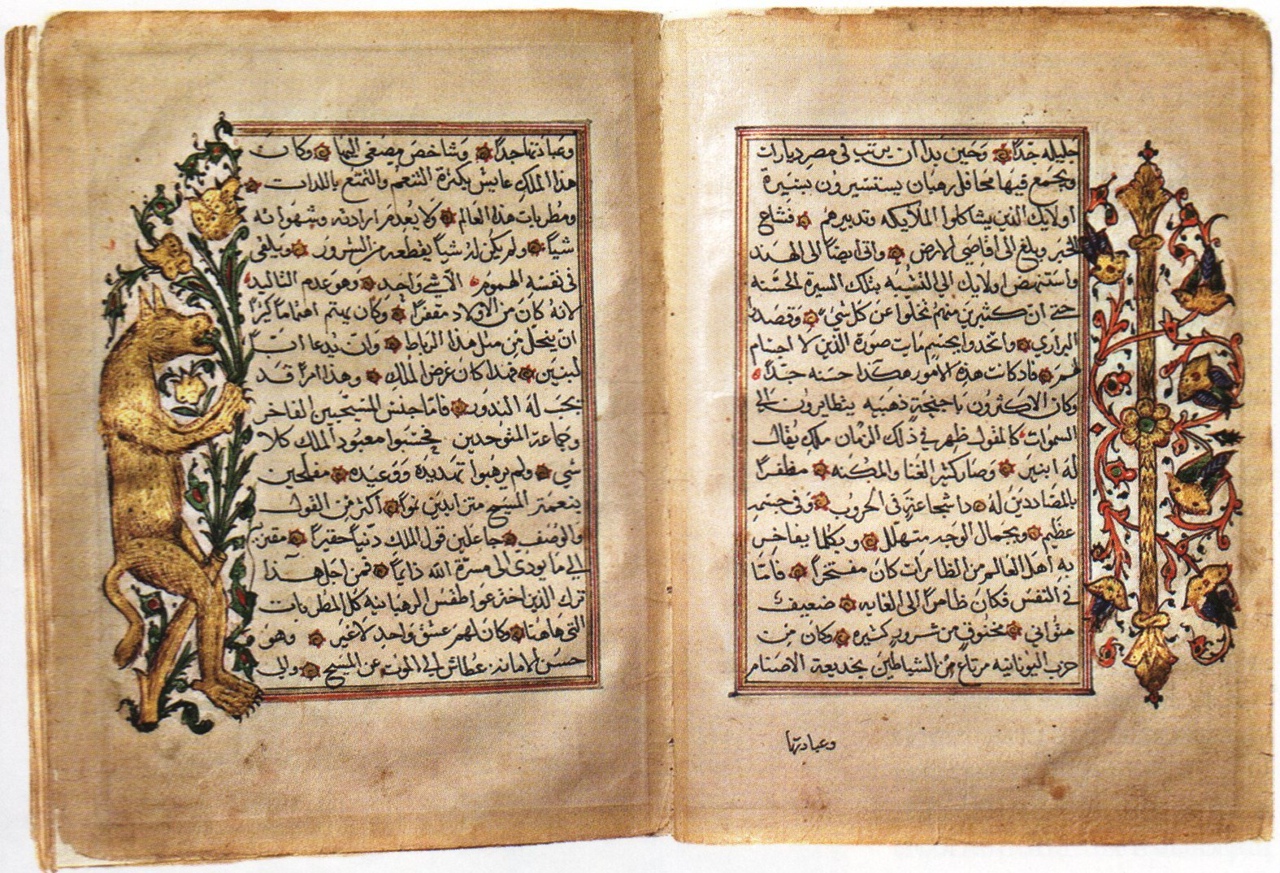 جليله جداً وحين بدا ان يرتب في مصر ديارات
ويجمع فيها محافل رهبان يستسيرون بسيرة
اولايك الذين يشاكلوا الملايكه وتدبيرهم فشاع
الخبر وبلغ الى اقاصي الارض واتى ايضاً الى الهند
واستنهض اولايك الي التشبه بتلك السيرة الحسنه
حتى ان كثيرين منهم تخلوا عن كل شي وقصدوا
البراري واتخدوا بجسم مايت صورة الذين لا اجسام
لهم فادكانت هذه الامور هكذا حسنه جداً
وكان الاكثرون باجنحةٍ ذهبيه يتطايرون الى
السموات كالمقول ظهر في ذلك الزمان ملك يقال
له ابنير وصار كثير الغنا والمكنه مظفراً
بالمصاددين له داشجاعةٍ في الحروب وفي جسمه
عظيم وبجمال الوجه متهلل وبكلما يفاخر
به اهل العالم من الظاهرات كان مفتخراً فامّا
في النفس فكان ظاهراً الى الغايه ضعيف
متواني مخنوق من شرورٍ كثيره وكان من
حزب اليونانيه مرتاع من الشياطين بخديعة الاصنام
وعبادتها
وعبادتها جداً وشاخص مصغى اليها وكان
هذا الملك عايش بكثرة التنعم والتمتع باللدات
ومطربات هذا العالم ولا يعدم ارادته وشهواته
شياً ولم يكن له شياً يقطعه من السرور ويلقي
في نفسه الهموم الا شي واحد وهو عدم التاليد
لانه كان من الاولاد مفقراً وكان يهتم اهتماماً كثيراً
ان ينحل من مثل هذا الرباط وان يدعا اباً
لبنين فهدا كان غرض الملك وهذا امراً قد
يجب له البدور فامّا جنس المسيحيين الفاخر
وجماعة المتوحدين فحسبوا معبود الملك كلا
شي ولم يرهبوا تهديده ووعيده مفلحين
بنعمة المسيح متزايدين نمواً اكثر من القول
والوصف جاعلين قول الملك دنياً حقيراً مقرين
الي ما يودي الى مسرة الله دايماً فمن اجل هذا
ترك الذين اخترعوا طقس الرهبانيه كل المطربات
التي هاهنا وكان لهم عشق واحد لا غير وهو
حسن الامانه عطاش الى الموت عن المسيح والى